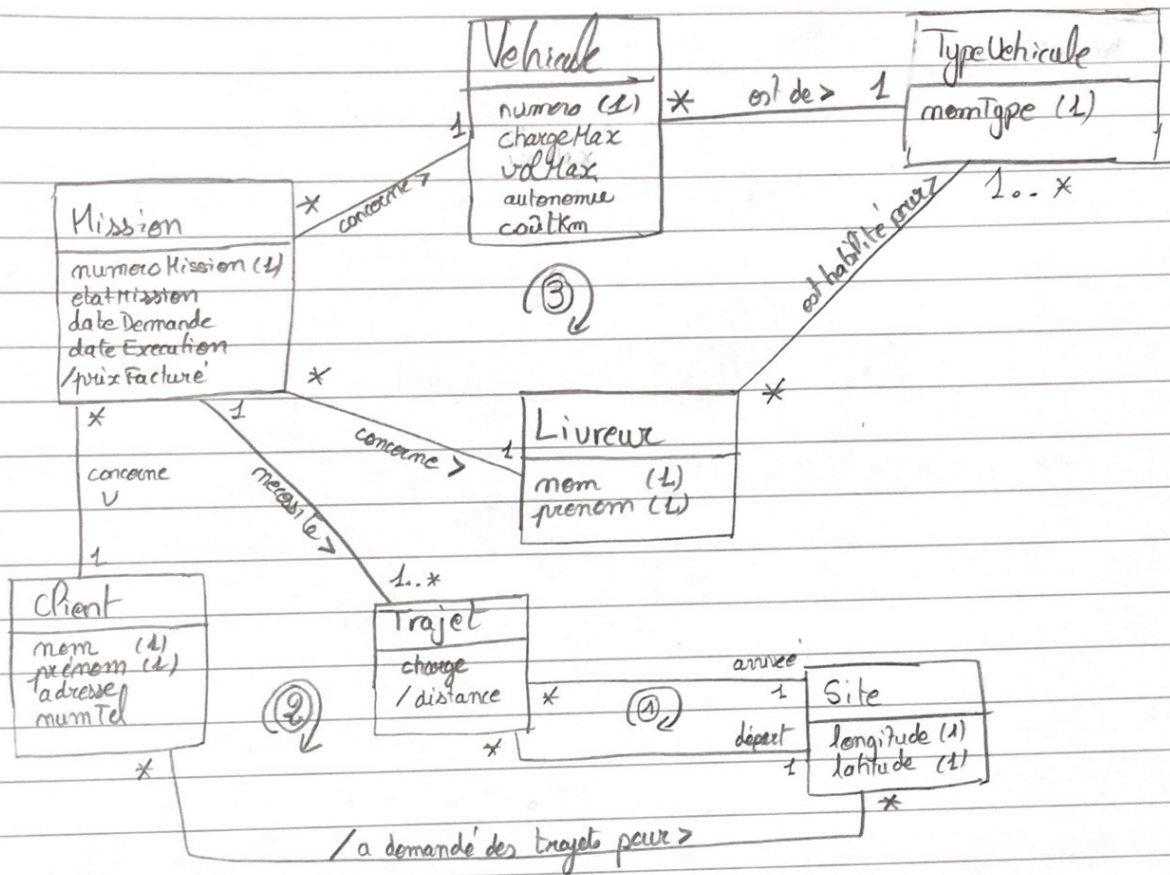 Vehicule
numero (1)
chargeMax
volMax
autonomie
coûtKm
* est de > 1
TypeVehicule
nomType (1)
1..*
est habilité pour >
*
1
concerne >
*
Mission
numeroMission (1)
etatMission
dateDemande
dateExecution
/prixFacturé
3
*
concerne >
1
Livreur
nom (1)
prenom (1)
*
concerne
v
1
1
necessite >
1..*
Client
nom (1)
prénom (1)
adresse
numTel
*
2
Trajet
charge
/distance
*
*
1
arrivée
1
départ
1
Site
longitude (1)
latitude (1)
*
/a demandé des trajets pour >